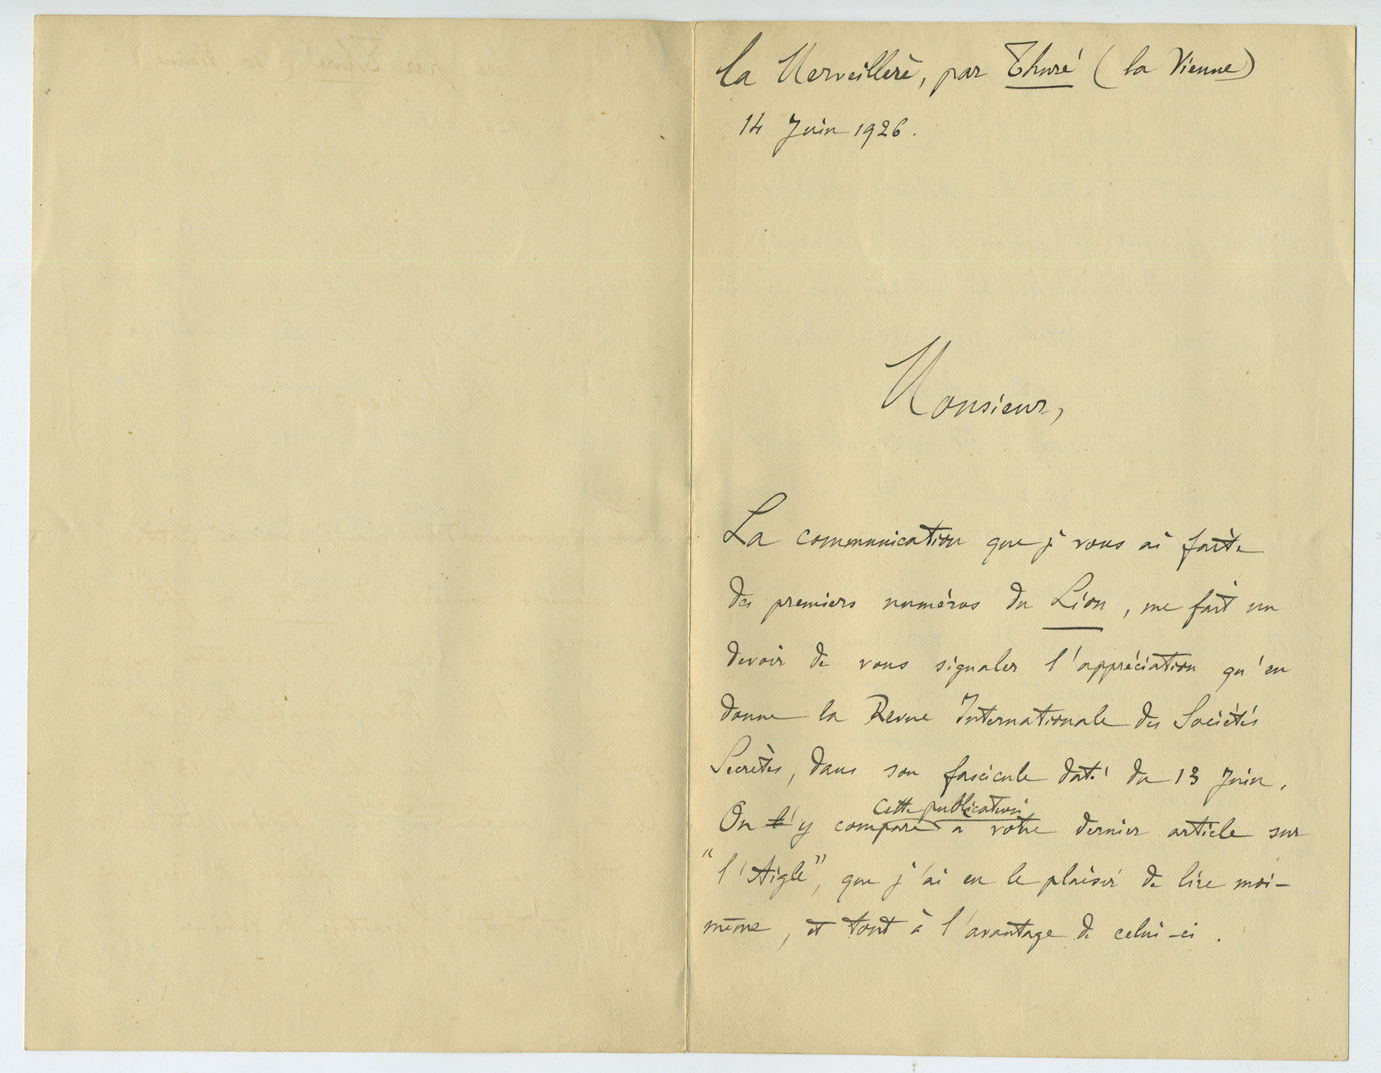 La Merveillère, par Thuré (la Vienne)
14 Juin 1926.
Monsieur,
La communication que je vous ai faite
des premiers numéros du Lion, me fait un
devoir de vous signaler l'appréciation qu'en
donne la Revue Internationale des Sociétés
Secrètes, dans son fascicule daté du 13 Juin.
cette publication
On l'y compare à votre dernier article sur
"l'Aigle", que j'ai eu le plaisir de lire moi-
même, et tout à l'avantage de celui-ci.